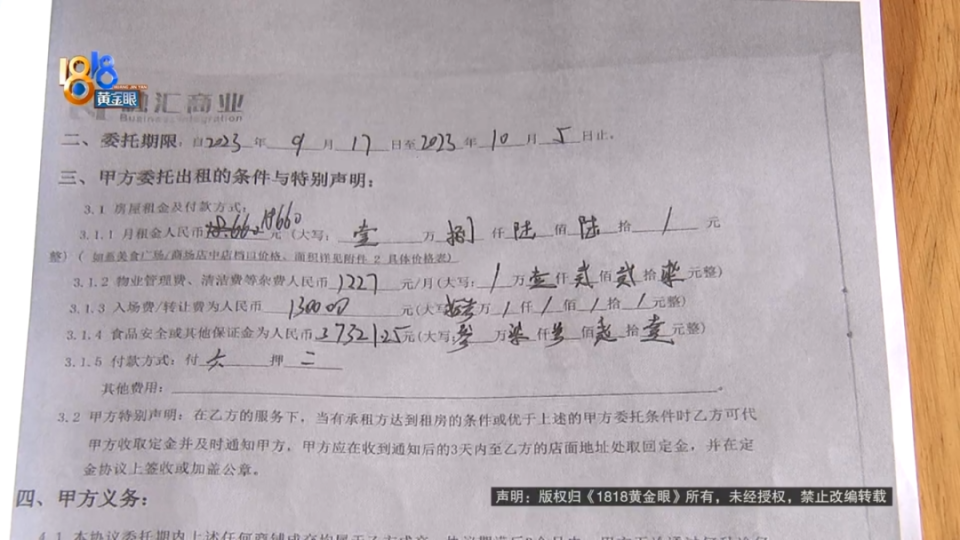 1818
黄金眼
汇商业
Business Integration
二、委托期限，自2023年 9 月 17 日至2023年 10 月 5 日止。
三、甲方委托出租的条件与特别声明：
3.1 房屋租金及付款方式：
3.1.1 月租金人民币 18660 元（大写： 壹 万 捌 仟 陆 佰 陆 拾 / 元
整）（如系美食广场/商场店中店档口价格、面积详见附件 2 具体价格表）
3.1.2 物业管理费、清洁费等杂费人民币 1227 元/月（大写： / 万 壹 仟 贰 佰 贰 拾 柒 元整）
3.1.3 入场费/转让费为人民币 130000 元（大写 万 / 仟 / 佰 / 拾 / 元整）
3.1.4 食品安全或其他保证金为人民币 37321.25 元（大写： 叁 万 柒 仟 佰 拾 壹 元整）
3.1.5 付款方式：付 六 押 二
其他费用：
3.2 甲方特别声明：在乙方的服务下，当有承租方达到租房的条件或优于上述的甲方委托条件时乙方可代
甲方收取定金并及时通知甲方，甲方应在收到通知后的3天内至乙方的店面地址处取回定金，并在定
金协议上签收或加盖公章。
四、甲方义务：
声明：版权归《1818黄金眼》所有，未经授权，禁止改编转载
4.1 本协议委托期内上述任何商铺成交均属于乙方成交